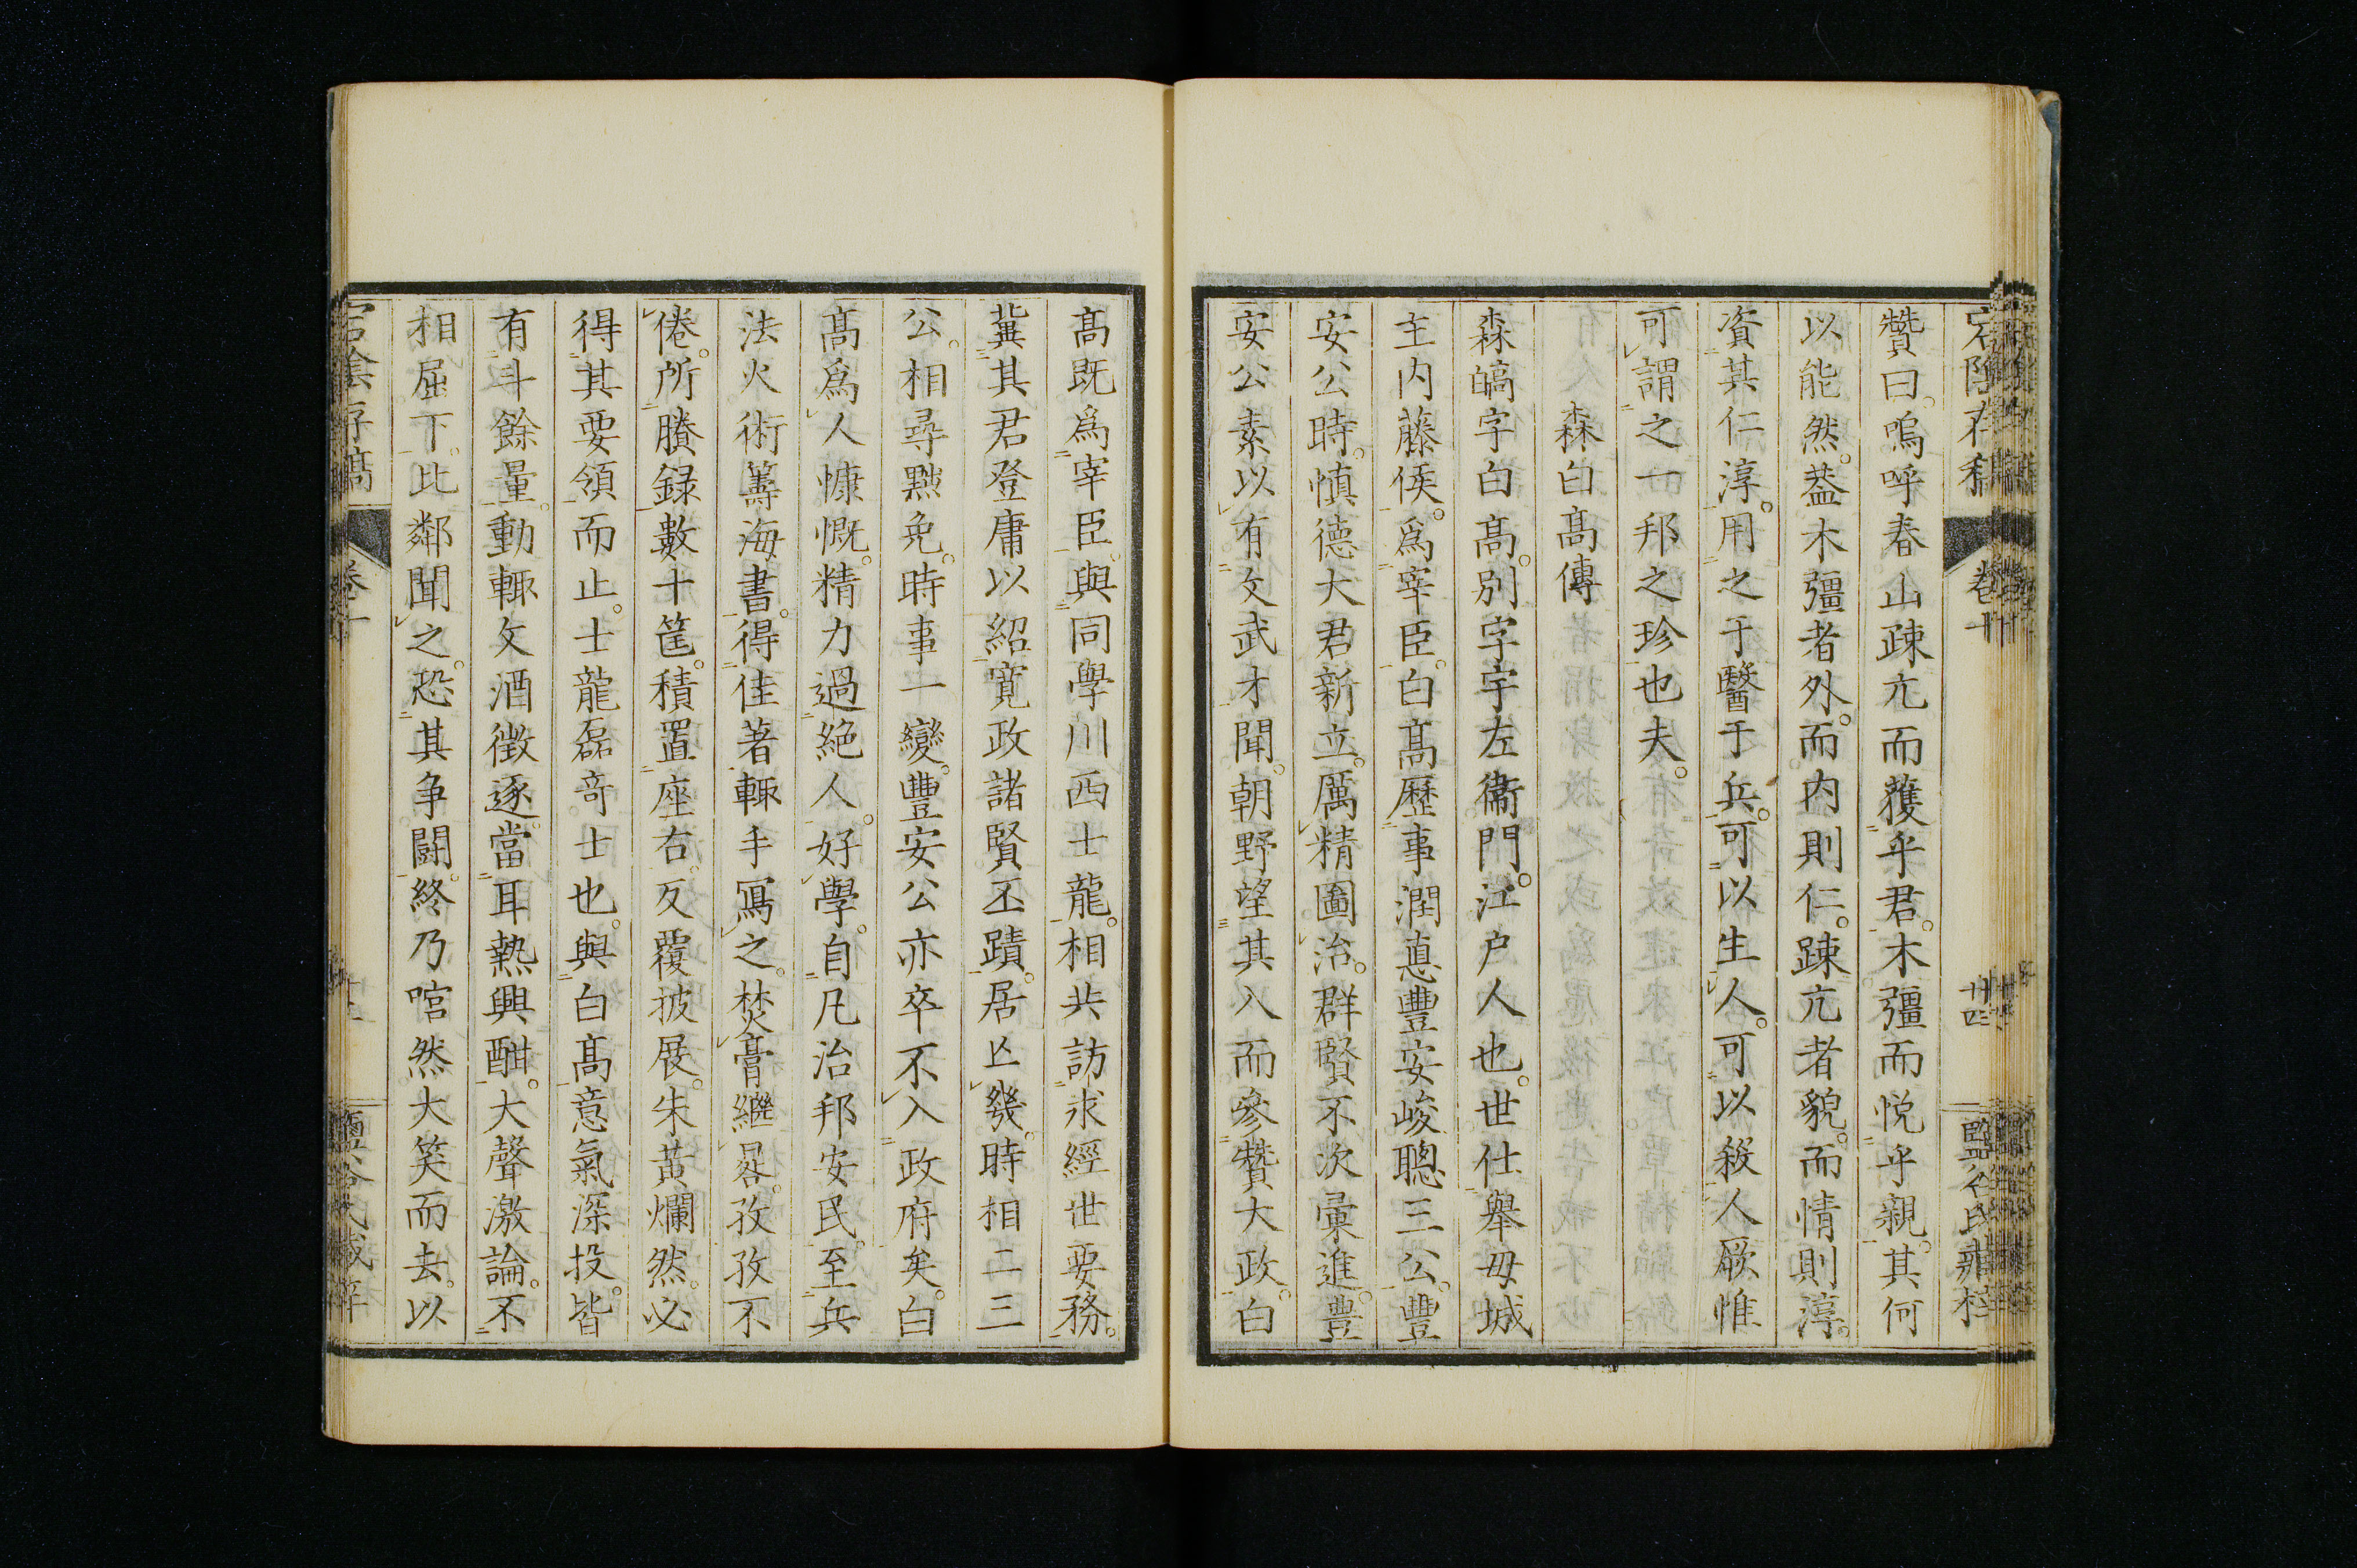 宕陰存稿
卷十
廿四
贊曰。嗚呼春山疎亢而獲乎君。木彊而悅乎親。其何
以能然。葢木彊者外。而内則仁。疎亢者貌。而情則淳。
資其仁淳。用之于醫于兵。可以生人。可以殺人。厥惟
可謂之一邦之珍也夫。
森白高傳
森㬶字白高。別字宇左衞門。江户人也。世仕舉母城
主内藤侯。爲宰臣。白高歷事潤悳豐安峻聰三公。豐
安公時。愼德大君新立。厲精圖治。群賢不次彙進。豊
安公素以有文武才聞。朝野望其入而參贊大政。白
高既爲宰臣。與同學川西士龍。相共訪求經世要務。
冀其君登庸以紹寛政諸賢丕蹟。居亾幾。時相二三
公。相尋黜免。時事一變。豐安公亦卒不入政府矣。白
高爲人慷慨。精力過絶人。好學。自凡治邦安民。至兵
法火術籌海書。得佳著輙手寫之。焚膏繼晷。孜孜不
倦。所賸録數十筐。積置座右。反覆披展。朱黃爛然。必
得其要領而止。士龍磊奇士也。與白高意氣深投。皆
有斗餘量。動輙文酒徵逐。當耳熱興酣。大聲激論。不
相屈下。比鄰聞之。恐其争鬪。終乃啍然大笑而去。以
宕陰存稿
卷十